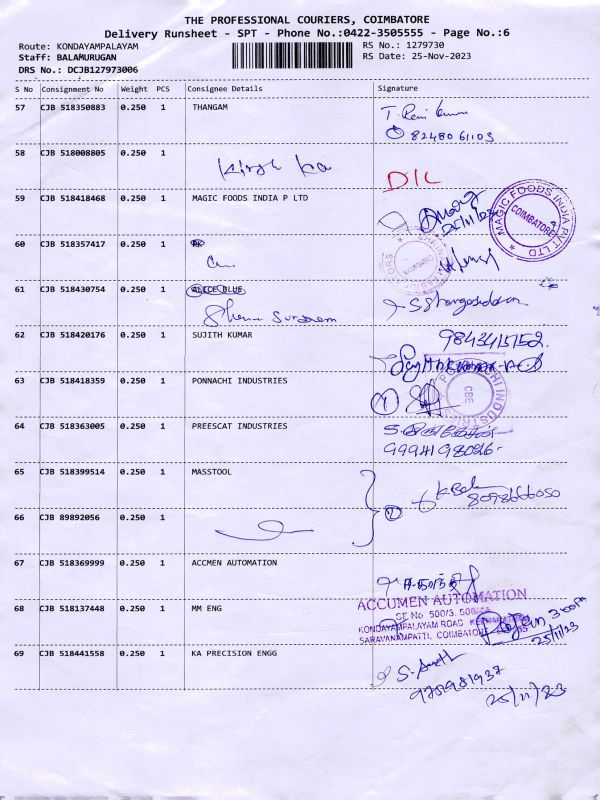 THE PROFESSIONAL COURIERS, COIMBATORE
Delivery Runsheet - SPT - Phone No.:0422-3505555 - Page No.:6
Route: KONDAYAMPALAYAM
RS No.: 1279730
Staff: BALAMURUGAN
RS Date: 25-Nov-2023
DRS No.: DCJB127973006
S No Consignment No Weight PCS Consignee Details Signature
57 CJB 518350883 0.250 1 THANGAM
8248061103
58 CJB 518008805 0.250 1
D/L
59 CJB 518418468 0.250 1 MAGIC FOODS INDIA P LTD
25/11/23
MAGIC FOODS INDIA PVT LTD
COIMBATORE
60 CJB 518357417 0.250 1
61 CJB 518430754 0.250 1 ALICE BLUE
62 CJB 518420176 0.250 1 SUJITH KUMAR
63 CJB 518418359 0.250 1 PONNACHI INDUSTRIES
1
CBE
64 CJB 518363005 0.250 1 PREESCAT INDUSTRIES
9994198026-
65 CJB 518399514 0.250 1 MASSTOOL
2
8098666050
66 CJB 89892056 0.250 1
67 CJB 518369999 0.250 1 ACCMEN AUTOMATION
ACCUMEN AUTOMATION
SF No 500/3,
68 CJB 518137448 0.250 1 MM ENG
KONDAYAMPALAYAM ROAD
SARAVANAMPATTI, COIMBATORE
25/11/23
69 CJB 518441558 0.250 1 KA PRECISION ENGG
25/11/23